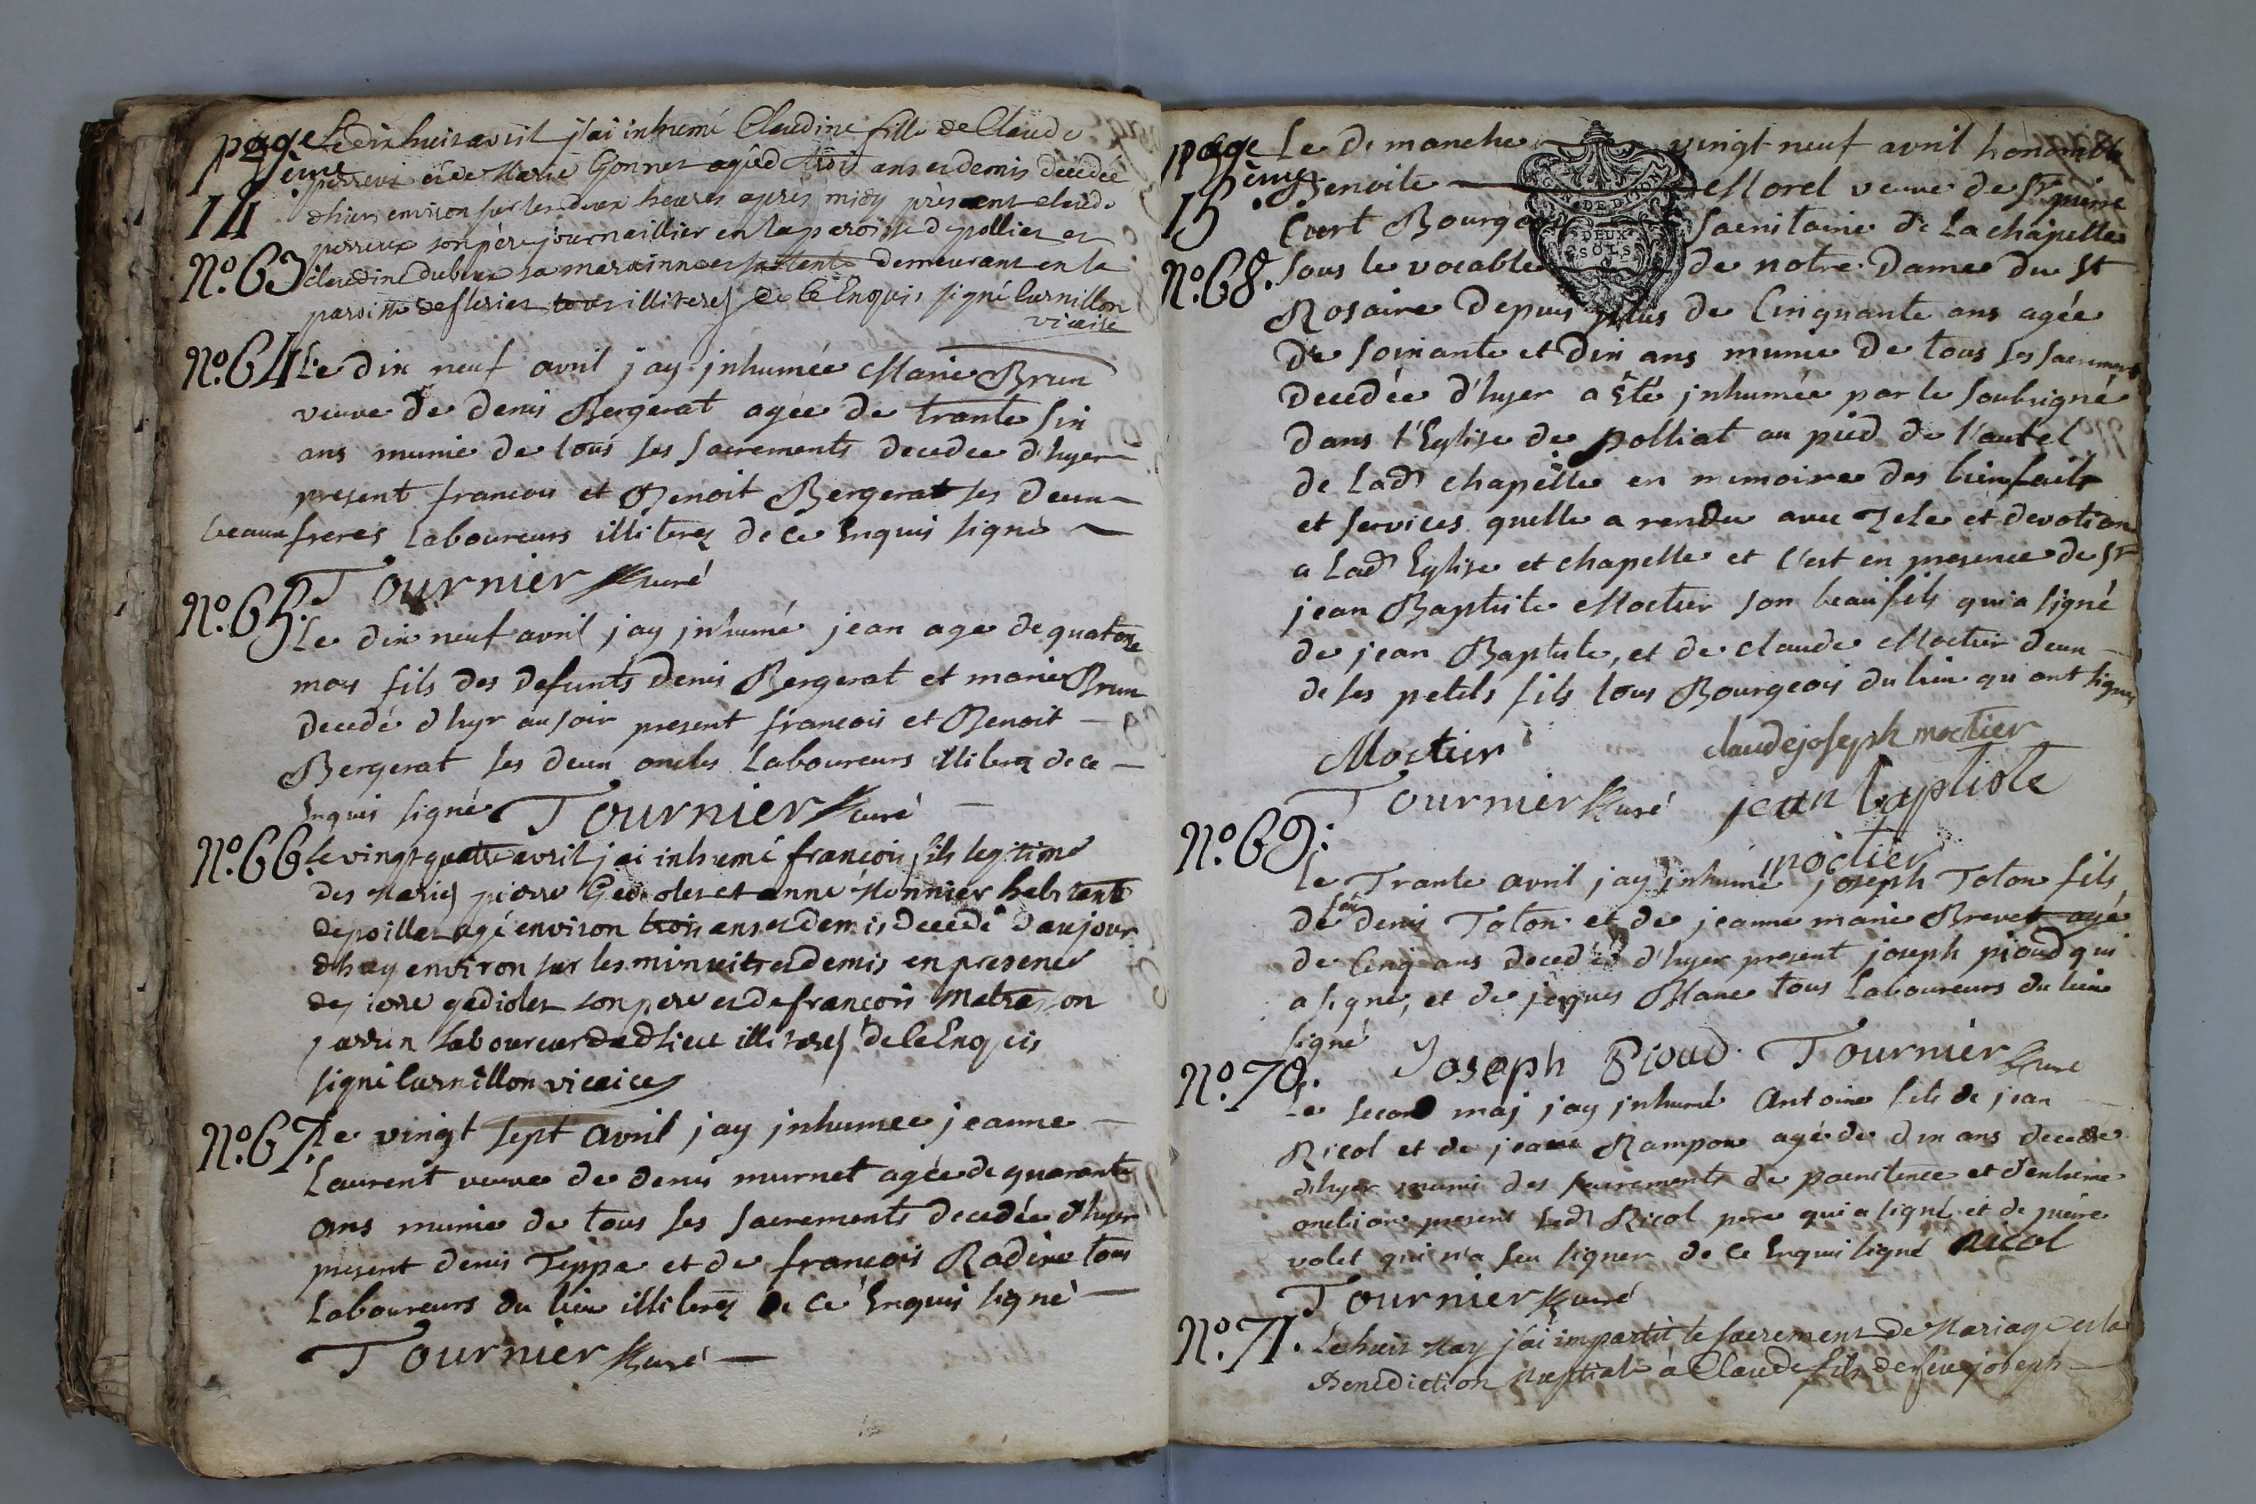 page
14
ème
Le dix huit avril j'ai inhumé Claudine fille de Claude
perreux et de Marie Gonnet agée de trois ans et demis decedée
d'hier environ sur les deux heures après midy présent claude
perreux son père journaillier en la paroisse de polliet et
claudine dubeux sa marainne et sa tente demeurant en la
paroisse de flerier tous illiteres de ce Enquis signé Curnillon
vicaire
No. 63
No. 64 Le dix neuf avril jay jnhumée Marie Brun
veuve de denis Bergerat agée de trante six
ans munie de tous ses sacrements decedee d'hyer
present francois et Benoit Bergerat ses deux
beaux freres Laboureurs illiterez de ce Enquis signé
Tournier Curé
No. 65.
Le dix neuf avril jay jnhumé jean age de quatorze
mois fils des defunts denis Bergerat et marie Brun
decedé d'hyr au soir present francois et Benoit
Bergerat ses deux oncles Laboureurs illiterez de ce
Enquis signé Tournier Curé
No. 66. Le vingt quatre avril j'ai inhumé francois fils legitime
des Mariez pierre Gediolet et anne Monnier habitants
de poillet agé environ trois ans et demis decedé d'aujour
d'huy environ sur les minuits et demis en presence
de pierre gediolet son pere et de francois
parrin laboureur dud lieu illiterez de ce Enquis
signé Curnillon vicaire
No. 67. Le vingt sept avril jay jnhumee jeanne
Laurent veuve de denis murnet agée de quarante
ans munie de tous ses sacrements decedée d'hyer
present denis Teppe et de francois Rodine tous
Laboureurs du lieu illiterez de ce Enquis signé
Tournier Curé
page
15 ème
Le dimanche vingt neuf avril honorable
Benoite Morel veuve de Sr pierre
Cvert Bourgeois Sacristaine de La chapelle
No. 68. sous le vocable de notre Dame du St
GEN. DE DIJON
DEUX
SOLS
Rosaire depuis plus de Cinquante ans agée
de soixante et dix ans munie de tous ses sacrements
decedée d'hyer a été jnhumée par le soubsigné
dans l'Eglise de polliat au pied de l'autel
de Lad chapelle en memoire des bienfaits
et services quelle a rendu avec Zele et devotion
a Lad Eglise et chapelle et c'est en presence de Sr
jean Baptiste Moctier son beau fils qui a signé
de jean Baptiste, et de claude Moctier deux
de ses petits fils tous Bourgeois du lieu qui ont signés
Moctier claude joseph moctier
Tournier Curé jean baptiste
moctier
No. 69.
Le Trante avril jay jnhumé joseph Toton fils
de feu denis Toton et de jeanne marie Brevet agé
de Cinq ans decedé d'hyer present joseph pioud qui
a signé, et de jaques Blanc tous Laboureurs du lieu
signé Joseph Pioud Tournier Curé
No. 70.
Le second maj jay jnhumé Antoine fils de jean
Ricol et de jeanne Rampon agé de dix ans decedé
d'hyer muni des sacrements de poenitence et d'extreme
onction present Led Ricol pere qui a signé et de pierre
volet qui n'a sceu signer de ce Enquis signé Ricol
Tournier Curé
No. 71. Le huit May j'ai impartit le sacrement de Mariage et la
Benediction Nuptiale à Claude fils de feu joseph